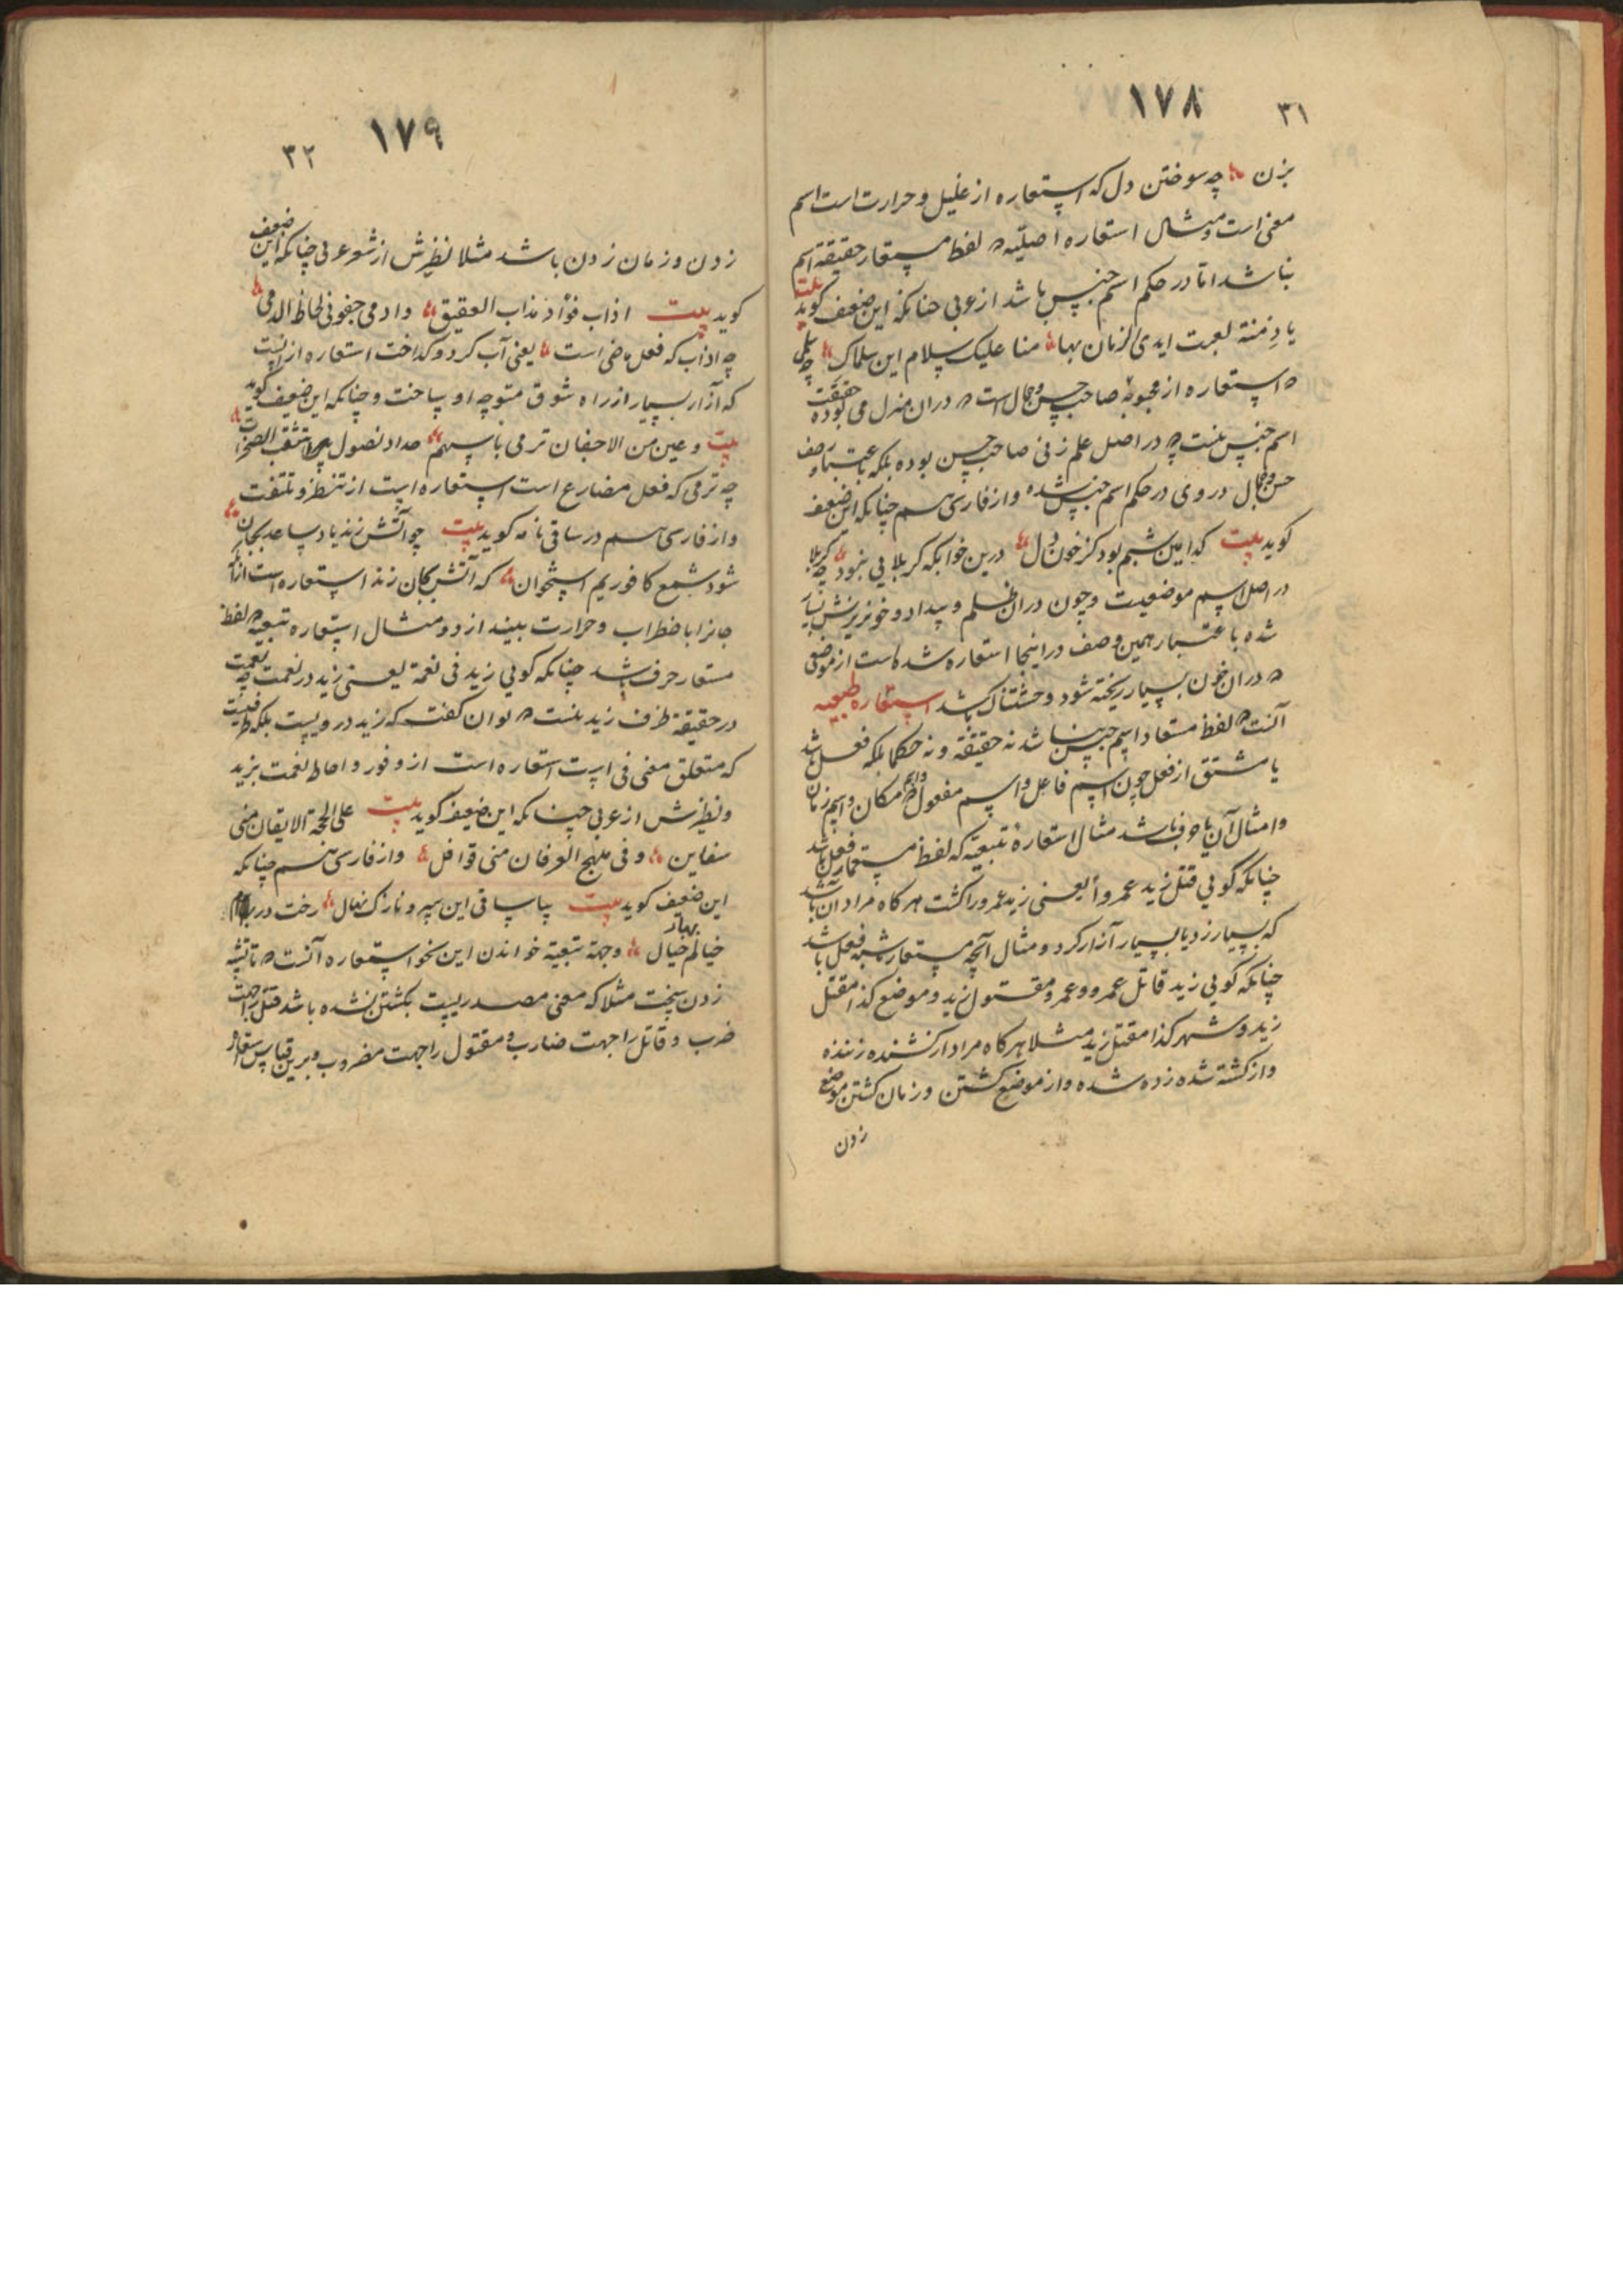 ١٧٨ ٣١
بزن چه سوختن دل که استعاره از غلیل و حرارت است اسم
معنی است و مثال استعاره اصلیّه که لفظ مستعار حقیقة اسم
نباشد اما در حکم اسم جنس باشد از عربی چنانکه این ضعیف کوید بیت
یا دمنة لعبت ایدی الزمان بها منا علیک سلام این سلماک چه سلمی
که استعاره از محبوبهٔ صاحب حسن و جمال است که در ان منزل می بوده حقیقت
اسم جنس نیست چه در اصل علم زنی صاحب حسن بوده بلکه باعتبار وصف
حسن و جمال در وی در حکم اسم جنس شده و از فارسی هم چنانکه این ضعیف
کوید بیت کدامین شبم بود کز خون دل درین خوابکه کربلایی نبود چه کربلا
در اصل اسم موضعیست و چون در ان ظلم و بیداد و خونریزش بسیار
شده باعتبار همین وصف در اینجا استعاره شده است از موضعی
که در ان خون بسیار ریخته شود و وحشتناک باشد استعاره طبعیه
آنست که لفظ مستعار اسم جنس نباشد نه حقیقة و نه حکما بلکه فعل باشد
یا مشتق از فعل چون اسم فاعل و اسم مفعول و اسم مکان و اسم زمان
و امثال آن یا حرف باشد مثال استعارهٔ تبعیّه که لفظ مستعار فعل باشد
چنانکه کویی قتل زید عمروا یعنی زید عمرو را کشت هر کاه مراد آن باشد
که بسیار زد یا بسیار آزار کرد و مثال آنچه مستعار مشبه فعل باشد
چنانکه کویی زید قاتل عمرو و عمرو مقتول زید و موضع کذا مقتل
زید و شهر کذا مقتل زید مثلا هر کاه مراد از کشنده زننده
و از کشته شده زده شده و از موضع کشتن و زمان کشتن موضع
زدن
١٧٩ ٣٢
زدن و زمان زدن باشد مثلا نظیرش از شعر عربی چنانکه این ضعیف
کوید بیت اذاب فؤاد مذاب العقیق و ادمی جفونی لحاظ الدمی
چه اذاب که فعل ماضی است یعنی آب کرد و کداخت استعاره از اینست
که آزار بسیار از راه شوق متوجه او ساخت و چنانکه این ضعیف کوید
بیت و عین من الاجفان ترمی باسهم حداد نصول تثقب الصخرات
چه ترمی که فعل مضارع است استعاره است از تنظر و تلتفت
و از فارسی هم در ساقی نامه کوید بیت چو آتش زند یاد ساعد بجان
شود شمع کافوریم استخوان که آتش بجان زند استعاره است از آنکه
جانرا باضطراب و حرارت بیند از دو مثال استعاره تبعیه که لفظ
مستعار حرف باشد چنانکه کویی زید فی نعمة یعنی زید در نعمت چه نعمت
در حقیقة ظرف زید نیست که توان کفت که زید در ویست بلکه ظرفیت
که متعلق معنی فی است استعاره است از وفور و احاطه نعمت بزید
و نظیرش از عربی چنانکه این ضعیف کوید بیت علی لجة الایقان منی
سفاین و فی منهج العرفان منی قوافل و از فارسی هم چنانکه
این ضعیف کوید بیت بیا ساقی این سرو نازک نهال رخت در بهار
خیالم خیال و جهة تبعیه خواندن این نحو استعاره آنست که تا تشبیه
زدن سخت مثلا که معنی مصدریست بکشتن نشده باشد قتل را جهت
ضرب و قاتل را جهت ضارب و مقتول را جهت مضروب و برین قیاس استعاره